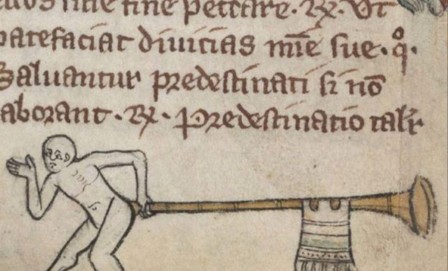 sine peccare. R. Ut
patefaciat divicias mie sue. q.
Saluantur predestinati si no
aborant. R. Predestinatio tali